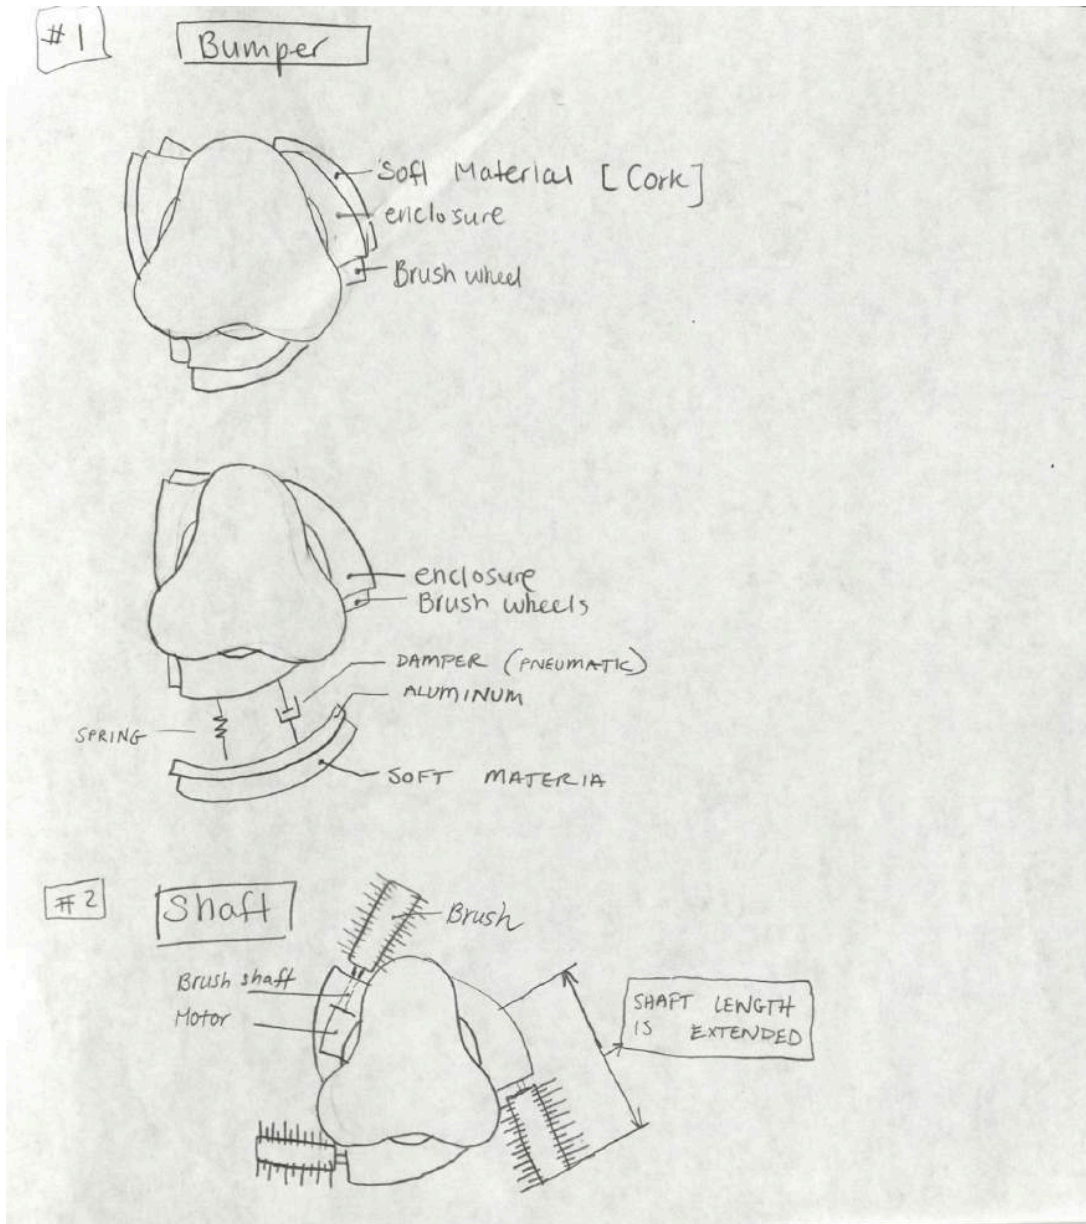 #1
Bumper
Soft Material [Cork]
enclosure
Brush wheel
enclosure
Brush wheels
DAMPER (PNEUMATIC)
ALUMINUM
SPRING
SOFT MATERIA
#2
Shaft
Brush
Brush shaft
Motor
SHAFT LENGTH
IS EXTENDED